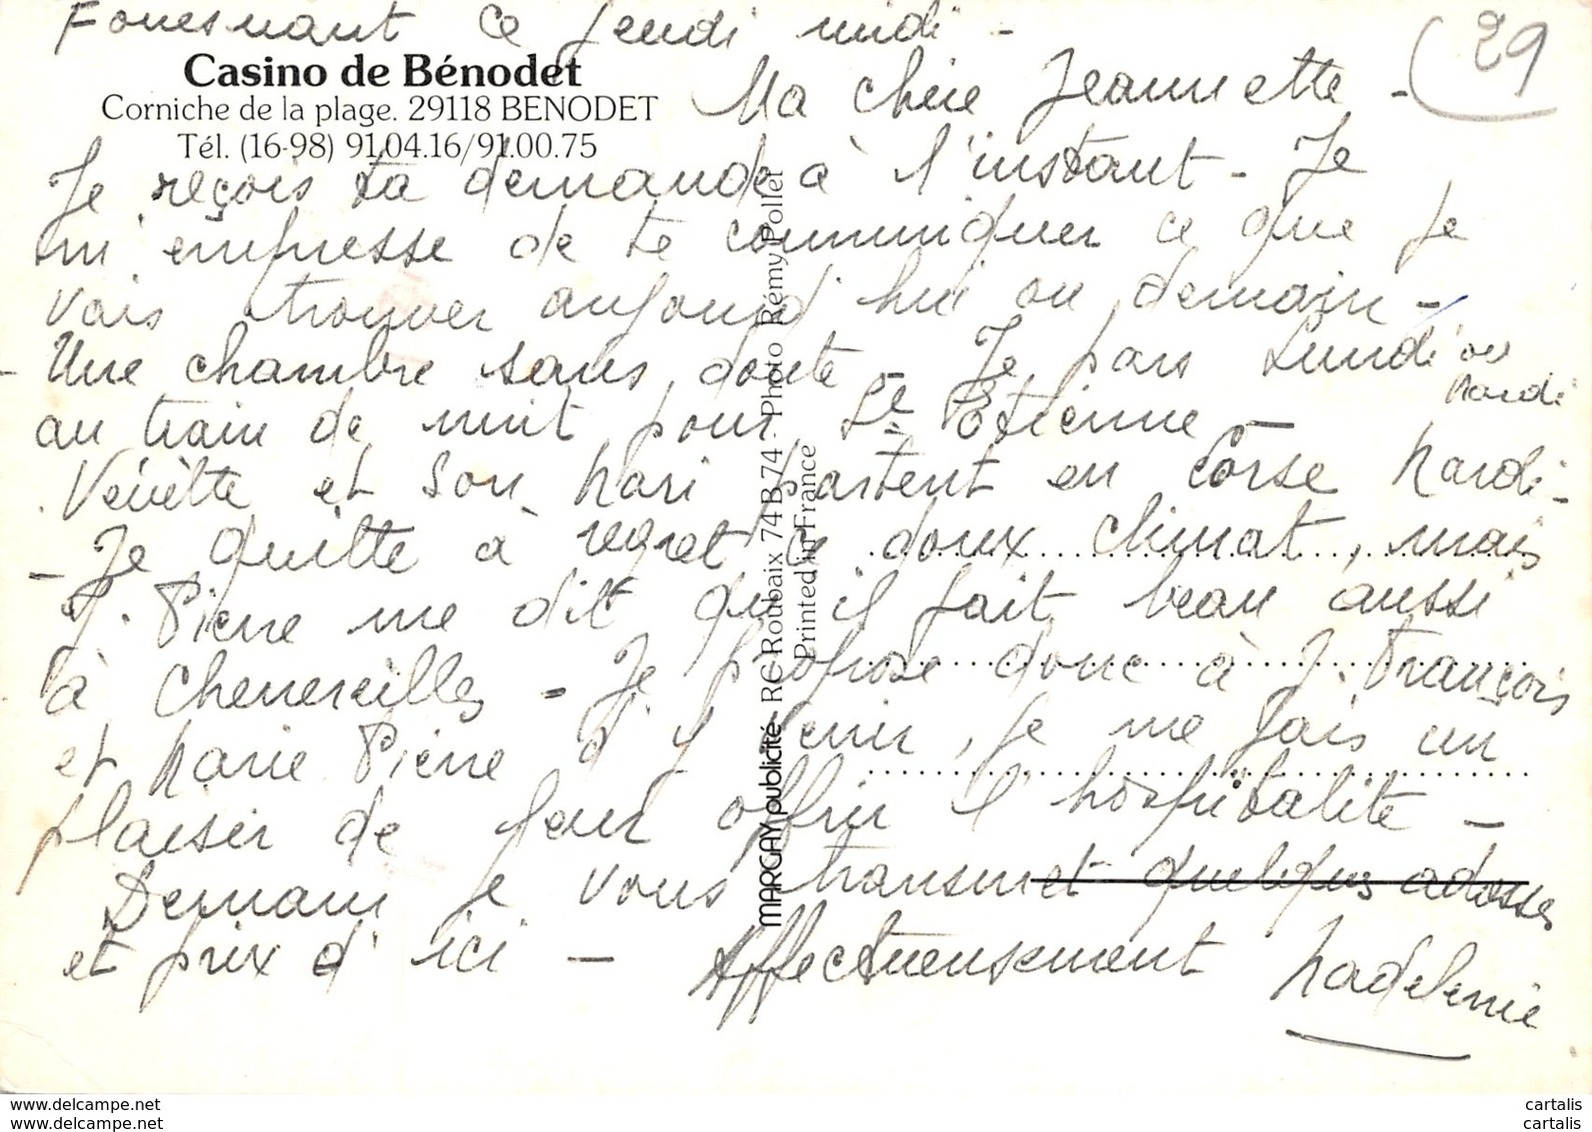 Fouesnant ce jeudi midi -
29
Casino de Bénodet
Corniche de la plage. 29118 BENODET
Tél. (16-98) 91.04.16/91.00.75
Ma chère Jeannette -
Je reçois ta demande à l'instant - Je
m'empresse de te communiquer ce que je
vais trouver aujourd'hui ou demain -
- Une chambre sans doute - Je pars Lundi ou
Mardi
au train de nuit pour St Etienne -
Vévètte et son Mari partent en Corse Mardi -
- Je quitte à regret ce doux climat, mais
J. Pierre me dit qu'il fait beau aussi
à Chenereilles - Je propose donc à J. François
et Marie Pierre d'y venir, je me fais un
plaisir de leur offrir l'hospitalité -
Demain je vous transmet quelques adresses
et prix d'ici - Affectueusement Madeleine
MARGAY publicité - RC Roubaix 74 B 74 - Photo Rémy Pollet
Printed in France
www.delcampe.net
cartalis
www.delcampe.net
cartalis